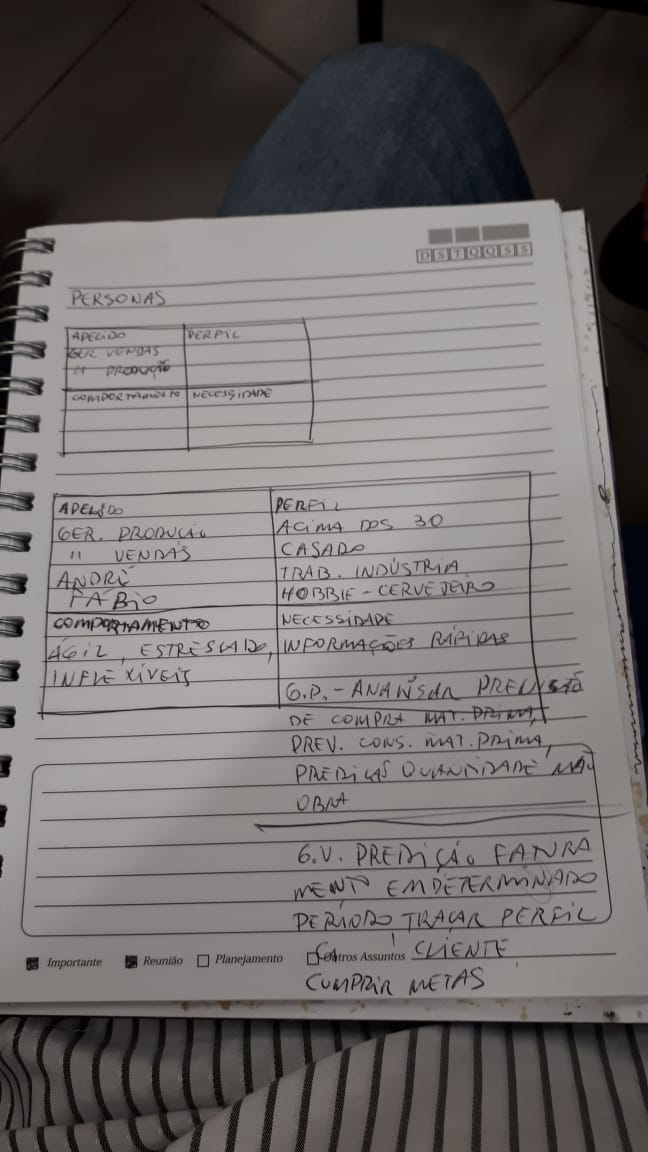 D S T Q Q S S
PERSONAS
APELIDO PERFIL
GER. VENDAS
" PRODUÇÃO
COMPORTAMENTO NECESSIDADE
APELIDO PERFIL
GER. PRODUÇÃO ACIMA DOS 30
" VENDAS CASADO
ANDRÉ TRAB. INDÚSTRIA
FÁBIO HOBBIE - CERVEJEIRO
COMPORTAMENTO NECESSIDADE
ÁGIL, ESTRESSADO, INFORMAÇÕES RÁPIDAS
INFLEXÍVEIS
G.P. - ANALISAR PREVISÃO
DE COMPRA MAT. PRIMA,
PREV. CONS. MAT. PRIMA,
PREDIÇÃO QUANTIDADE MÃO
OBRA
G.V. PREDIÇÃO FATURA
MENTO EM DETERMINADO
PERÍODO TRAÇAR PERFIL
Importante Reunião Planejamento Outros Assuntos CLIENTE
CUMPRIR METAS